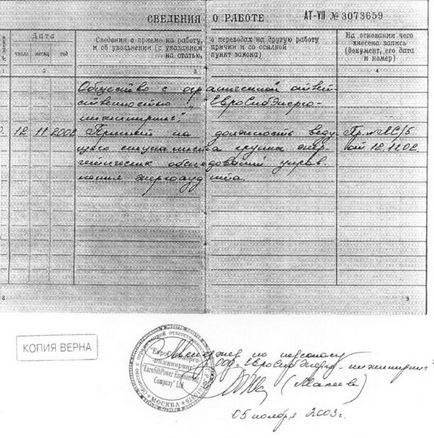 СВЕДЕНИЯ О РАБОТЕ АТ-VII № 3073659
Дата
число месяц год
Сведения о приеме на работу, о переводах на другую работу
и об увольнении (с указанием причин и со ссылкой
на статью, пункт закона)
На основании чего
внесена запись
(документ, его дата
и номер)
1 2 3 4
Общество с ограниченной ответ-
ственностью "ЕвроСибЭнерго-
инжиниринг"
12 11 2002 Принят на должность веду-
щего специалиста группы энер-
гетических обследований управ-
ления энергоаудита.
от 12.11.02
8 9
КОПИЯ ВЕРНА
Менеджер по персоналу
ООО "ЕвроСибЭнерго-инжиниринг"
(Макеева)
05 ноября 2003г.
EurosibPower Engineering
Company" Ltd
МОСКВА